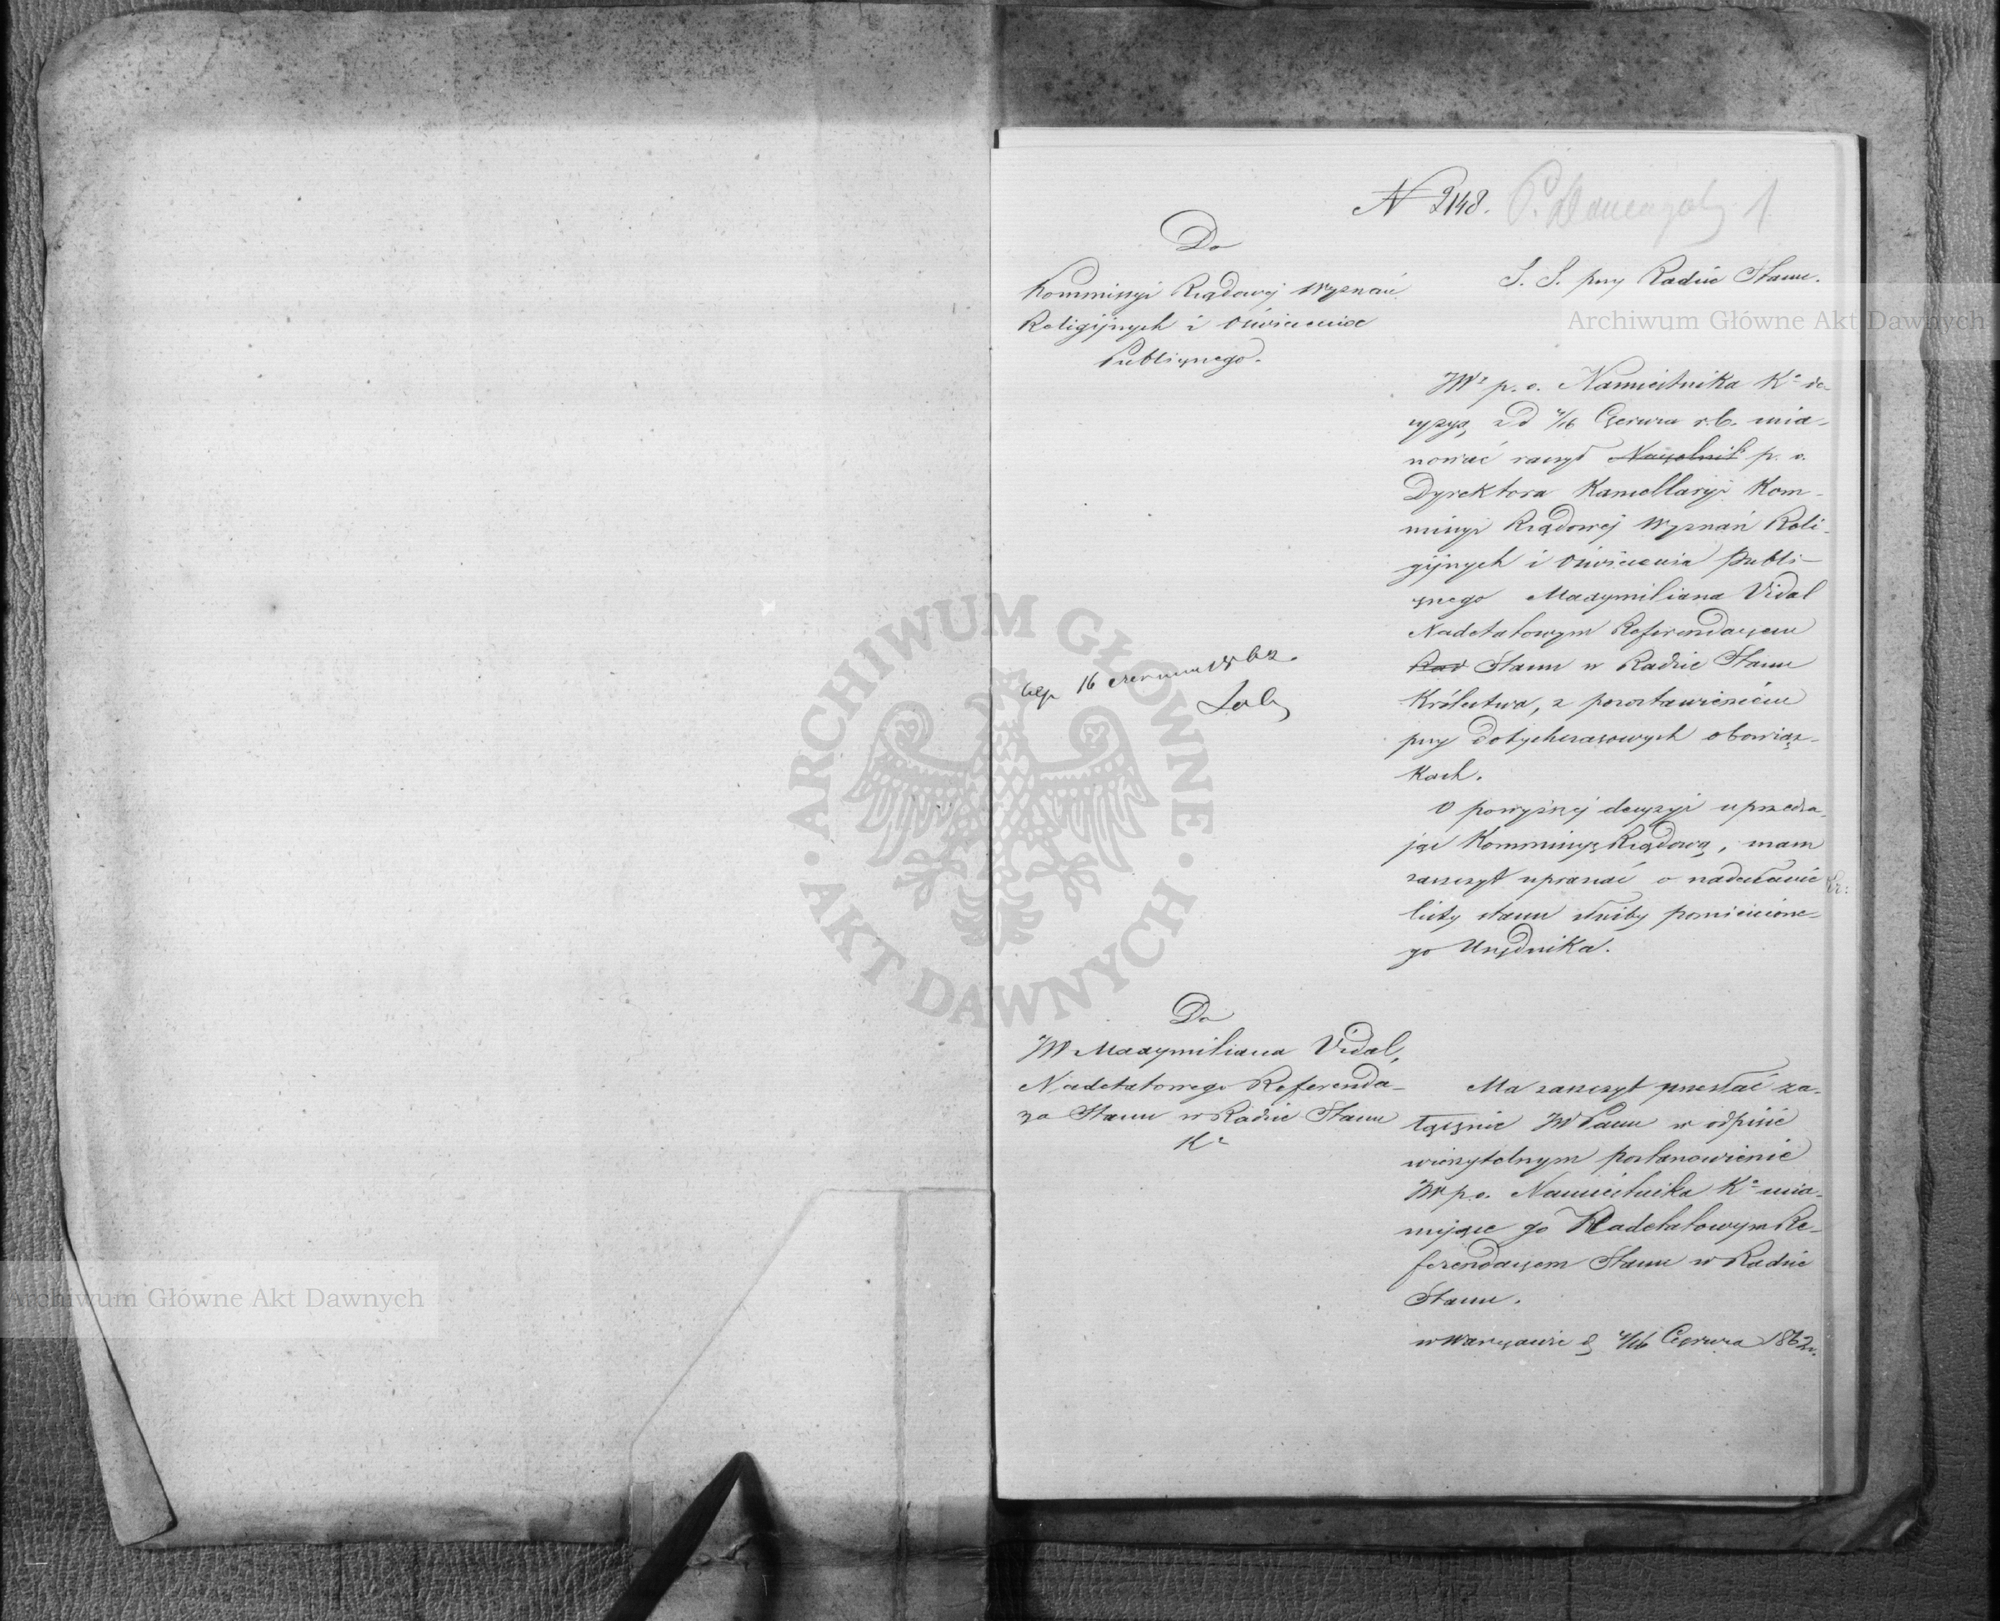 N 2148.
1
Do
Kommissyi Rządowej Wyznań
Religijnych i Oświecenia
Publicznego.
S. S. przy Radzie Stanu.
JW p. o. Namiestnika Kr. de-
cyzyą z d 4/16 Czerwca r.b. mia-
nować raczył Naczelnik p. o.
Dyrektora Kancellaryi Kom-
missyi Rządowej Wyznań Reli-
gijnych i Oświecenia Publi-
cznego Maxymiliana Vidal
Nadetatowym Referendarzem
Rad Stanu w Radzie Stanu
Królestwa, z pozostawieniem
przy dotychczasowych obowiąz-
kach.
O powyższej decyzyi uprzedza-
jąc Kommissyę Rządową, mam
zaszczyt upraszać o nadesłanie
listy stanu służby pomienione-
go Urzędnika.
16 czerwca 1862.
Do
JW Maxymiliana Vidal,
Nadetatowego Referenda-
rza Stanu w Radzie Stanu
Kr
Ma zaszczyt przesłać za-
łącznie JW Panu w odpisie
wierzytelnym postanowienie
JW p.o. Namiestnika Kr. mia-
nujące go Nadetatowym Re-
ferendarzem Stanu w Radzie
Stanu.
w Warszawie d 4/16 Czerwca 1862 r.
Archiwum Główne Akt Dawnych
Archiwum Główne Akt Dawnych
ARCHIWUM GŁÓWNE · AKT DAWNYCH ·